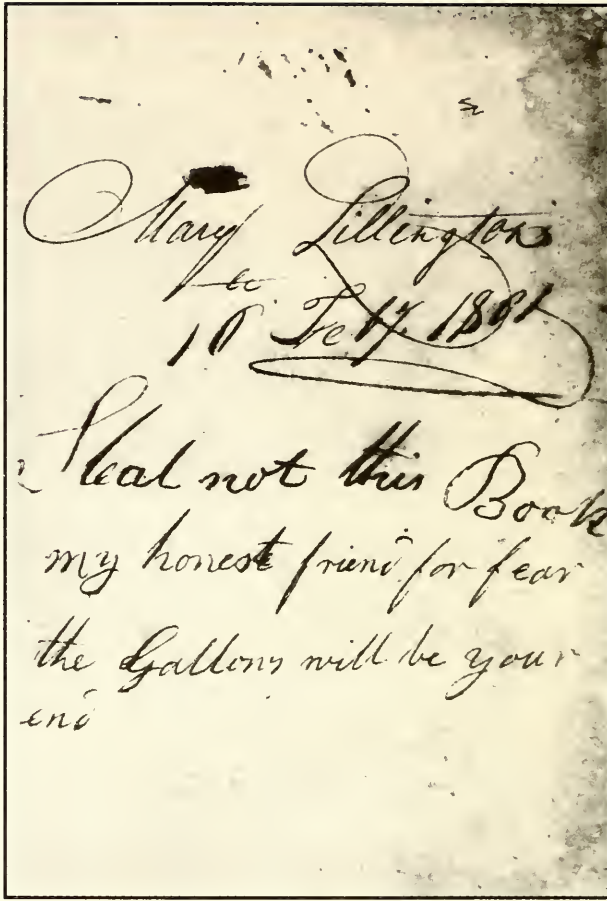 Mary Lillington
Feby 1801
Steal not this Book
my honest friend for fear
the Gallons will be your
end